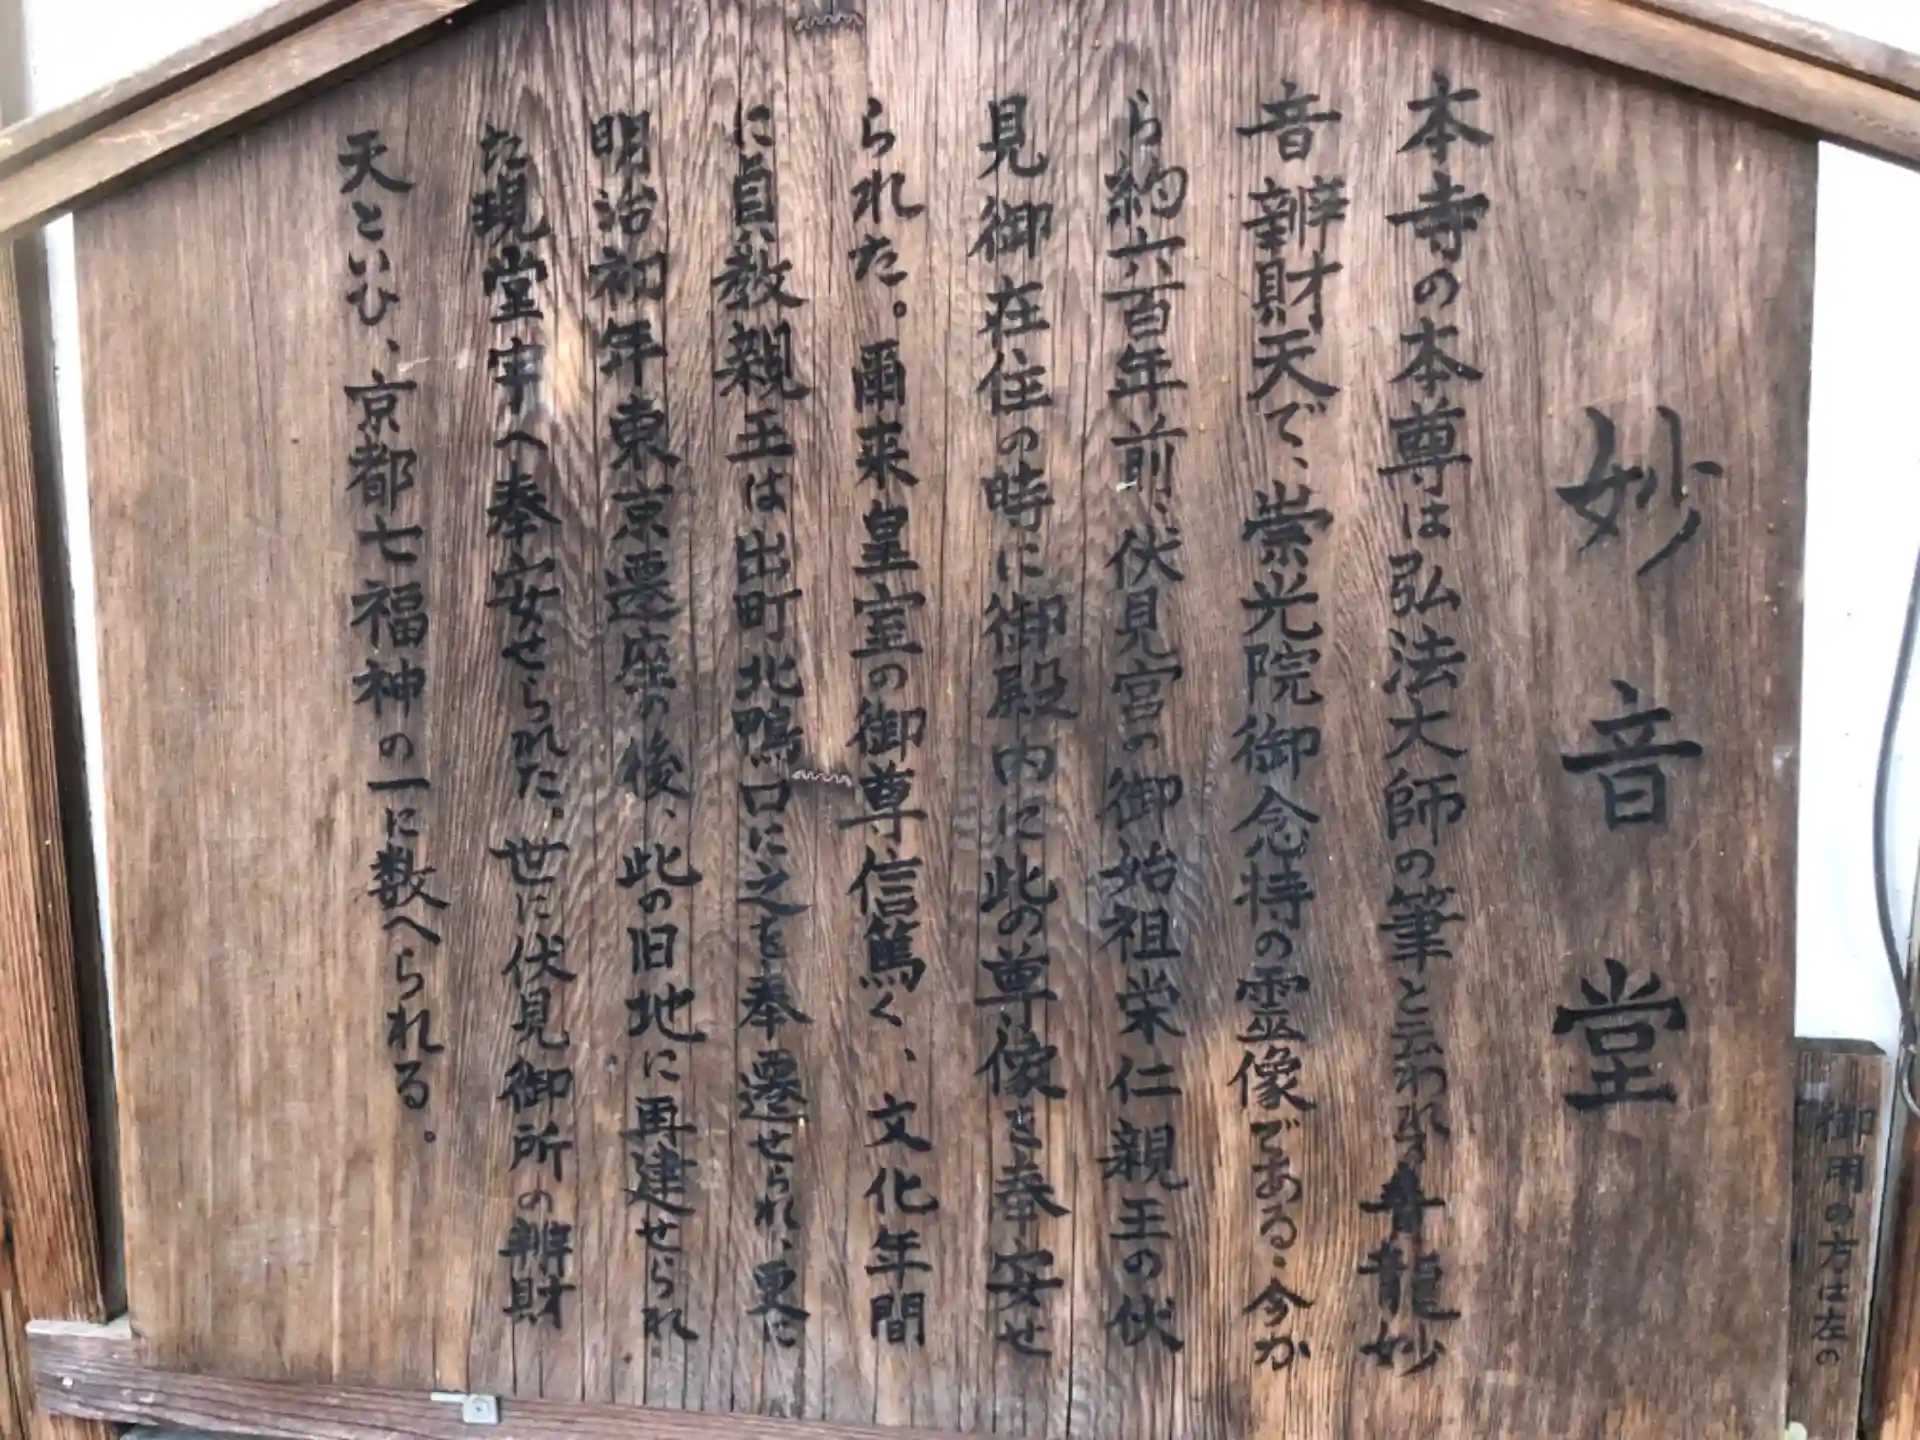 妙音堂
本寺の本尊は弘法大師の筆と云われ青龍妙
音辨財天で、崇光院御念持の霊像である。今か
ら約六百年前、伏見宮の御始祖栄仁親王の伏
見御在住の時に御殿内に此の尊像を奉安せ
られた。爾来皇室の御尊信篤く、文化年間
に貞教親王は出町北鴨口に之を奉遷せられ、更に
明治初年東京遷座の後、此の旧地に再建せられ
た現堂宇へ奉安せられた。世に伏見御所の辨財
天といひ、京都七福神の一に数へられる。
御用の方は左の